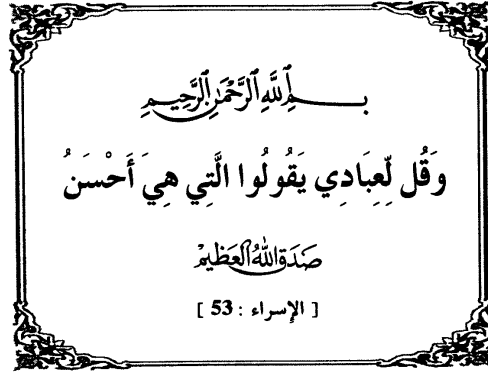 بِسْمِ ٱللَّهِ ٱلرَّحْمَٰنِ ٱلرَّحِيمِ
وَقُل لِّعِبَادِي يَقُولُوا الَّتِي هِيَ أَحْسَنُ
صَدَقَ اللهُ العَظِيمْ
[ الإسراء : 53 ]